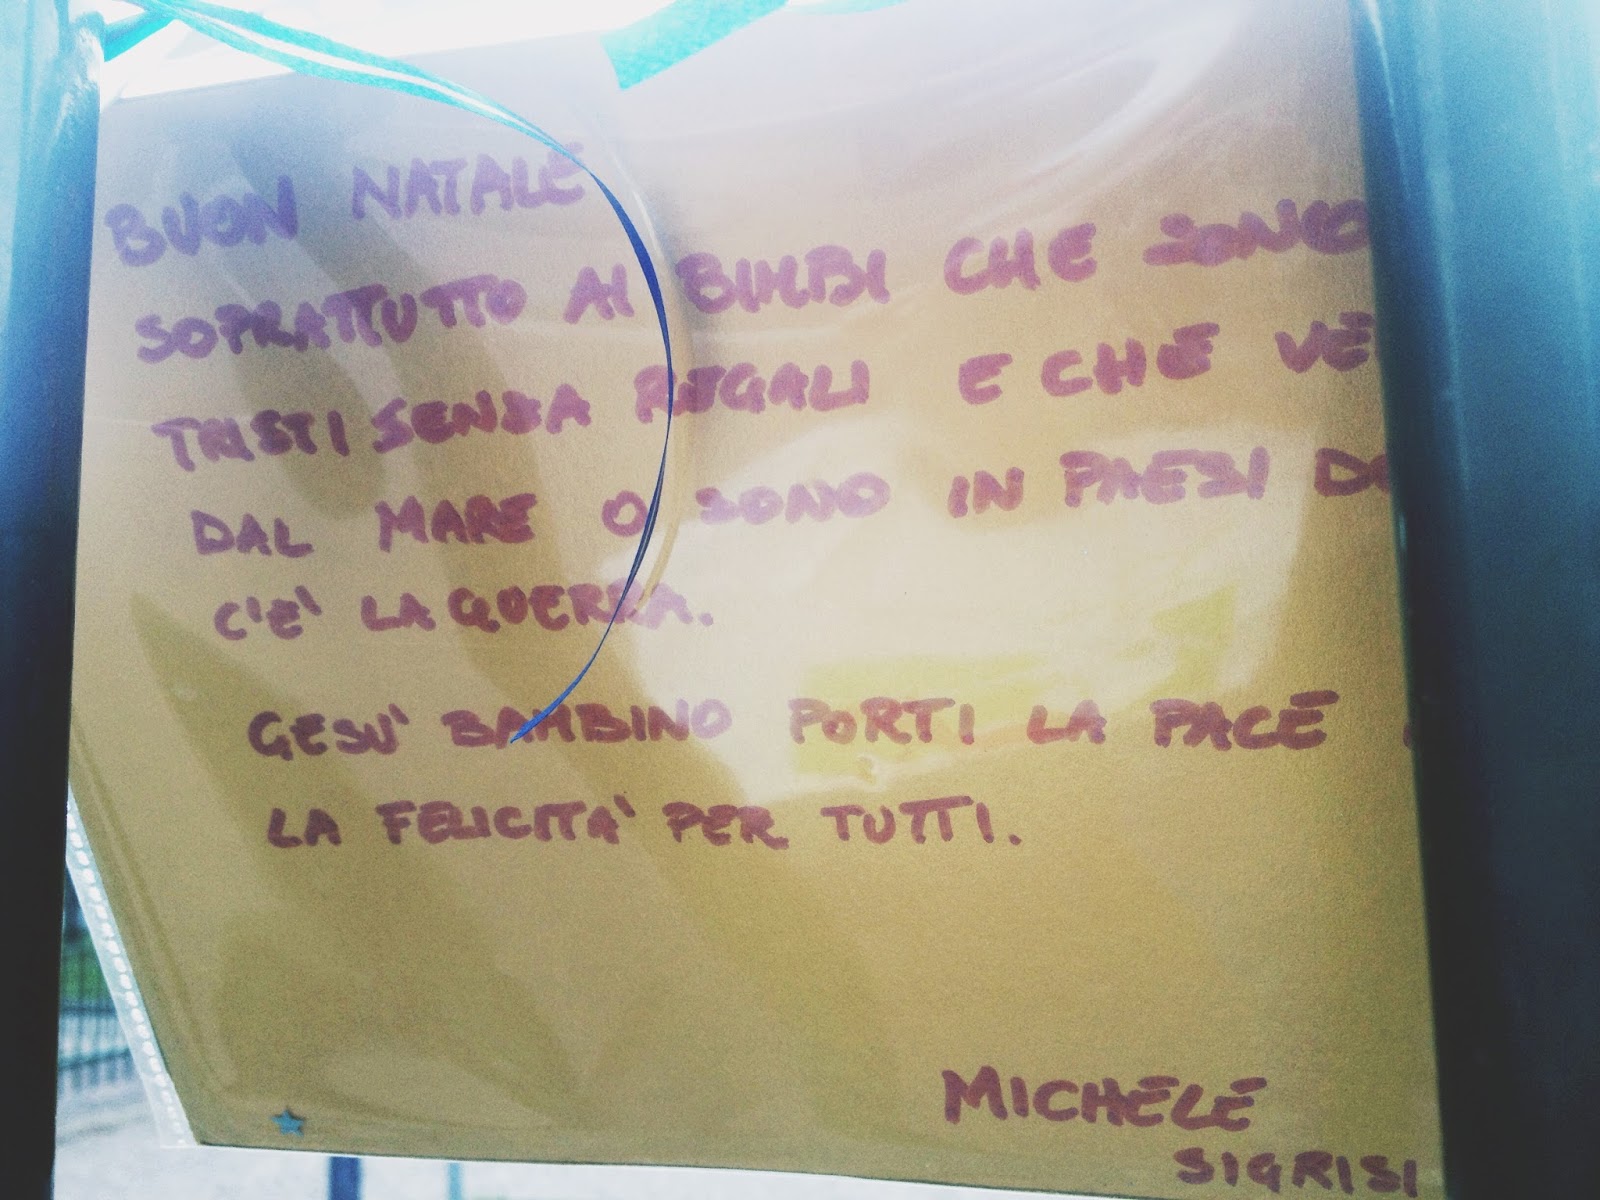 BUON NATALE
SOPRATTUTTO AI BIMBI CHE SONO
TRISTI SENZA REGALI E CHE VE
DAL MARE O SONO IN PAESI DO
C'E' LA GUERRA.
GESU' BAMBINO PORTI LA PACE
LA FELICITA' PER TUTTI.
MICHELE
SIGRISI